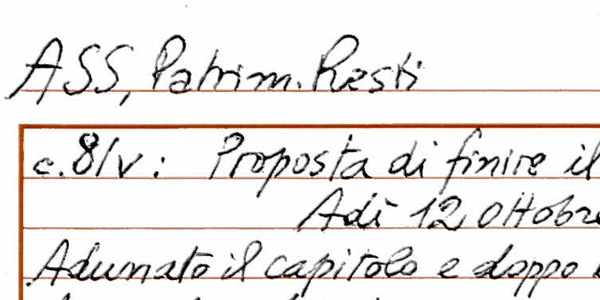 ASS, Patrim. Resti
c. 8/v: Proposta di finire il
Adì 12 Ottobre
Adunato il capitolo e doppo